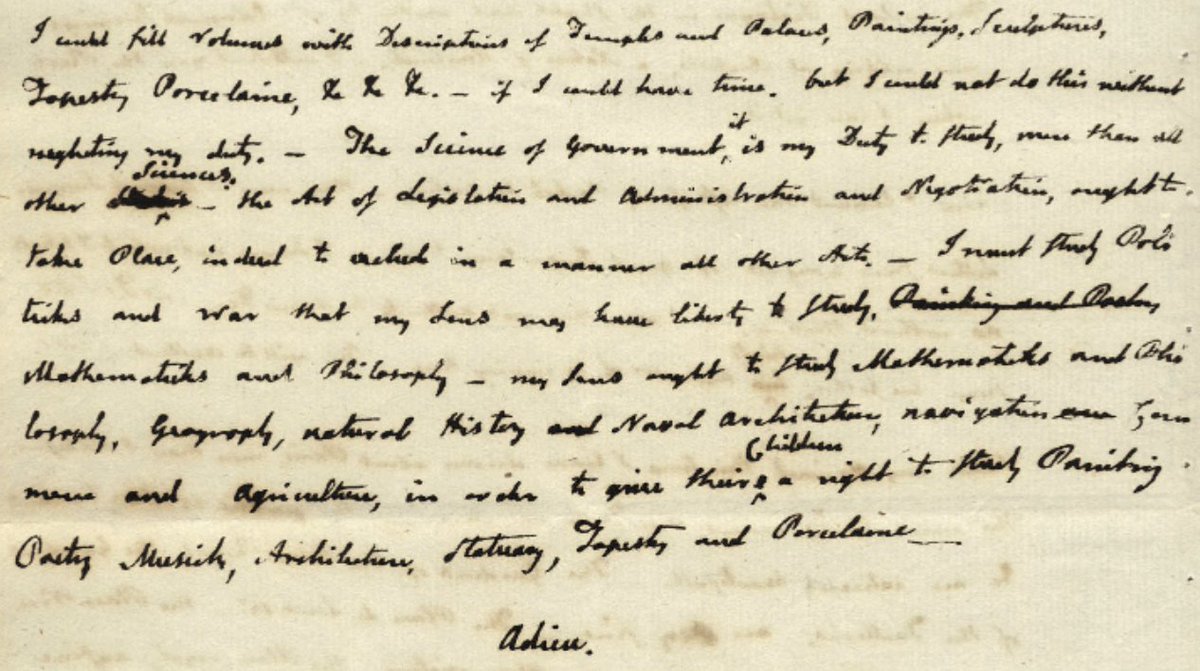 I could fill Volumes with Descriptions of Temples and Palaces, Paintings, Sculptures,
Tapestry, Porcelaine, &c &c &c. — if I could have time. but I could not do this without
neglecting my duty. — The Science of Government, it is my Duty to study, more than all
other Sciences. — the Art of Legislation and Administration and Negotiation, ought to
take Place, indeed to exclude in a manner all other Arts. — I must study Poli
ticks and War that my sons may have liberty to study, Painting and Poetry
Mathematicks and Philosophy — my sons ought to study Mathematicks and Phi
losophy, Geography, natural History and Naval Architecture, navigation and Com
merce and Agriculture, in order to give their Children a right to study Painting
Poetry Musick, Architecture, Statuary, Tapestry and Porcelaine —
Adieu.